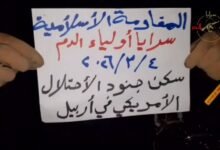 المقاومة الإسلامية
سرايا أولياء الدم
٢٠٢٦/٣/٤
سكن جنود الأحتلال
الأمريكي في أربيل